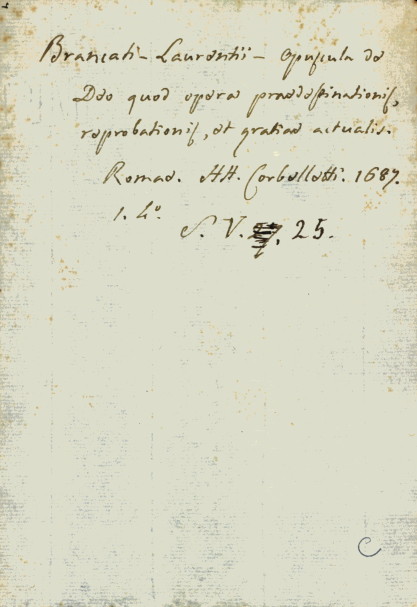 Brancati - Laurentii - Opuscula de
Deo quod operæ prædestinationis,
reprobationis, et gratiae actualis.
Romae. HH. Corbelletti. 1687.
1. 4º.
S. V. 25.
C